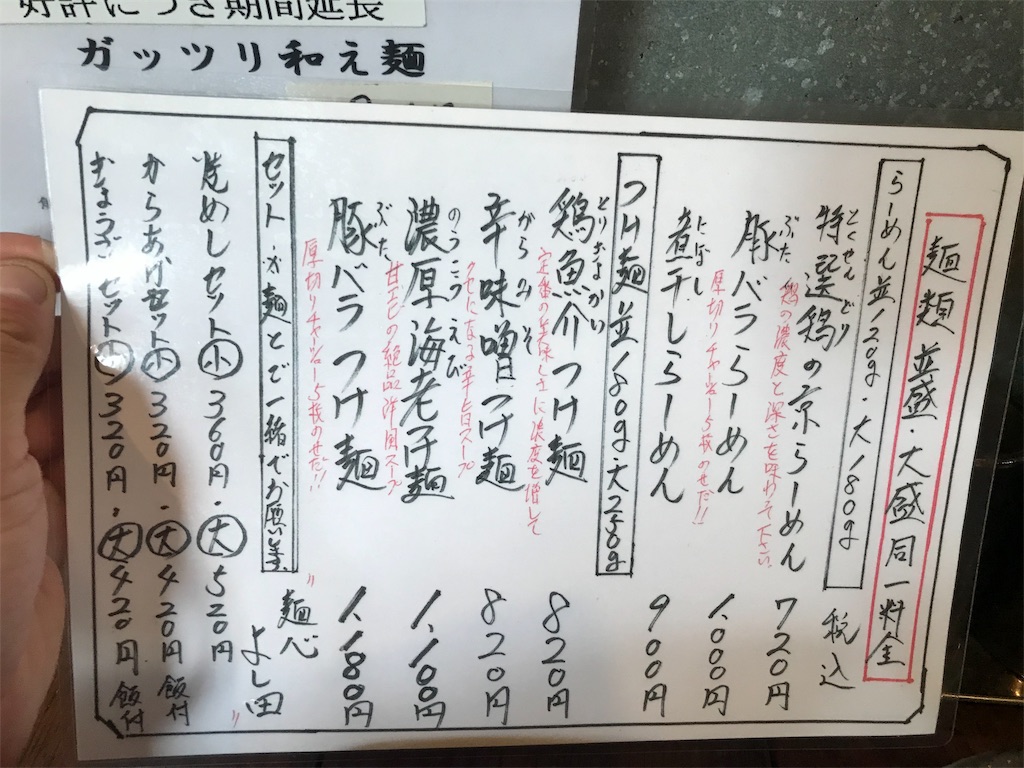 好評につき期間延長
ガッツリ和え麺
麺類 並盛・大盛同一料金
らーめん並120g・大180g
税込
とくせんどり
特選鶏の京らーめん 720円
鶏の濃度と深さを味わって下さい
ぶた
豚バラらーめん 1,000円
厚切りチャーシュー5枚のせだ!!
にぼし
煮干しらーめん 900円
つけ麺並180g大250g
とりぎょかい
鶏魚介つけ麺 820円
定番の美味しさに濃度を増して
がらみそ
辛味噌つけ麺 820円
クセになる辛旨スープ
のうこうえび
濃厚海老つけ麺 1,100円
甘エビの絶品濃厚スープ
ぶた
豚バラつけ麺 1,180円
厚切りチャーシュー5枚のせだ!!
セットは麺とご一緒でお願い致します
焼めしセット小360円・大520円
からあげセット小320円・大420円飯付
ぎょうざセット小320円・大420円飯付
〃麺心よし田〃